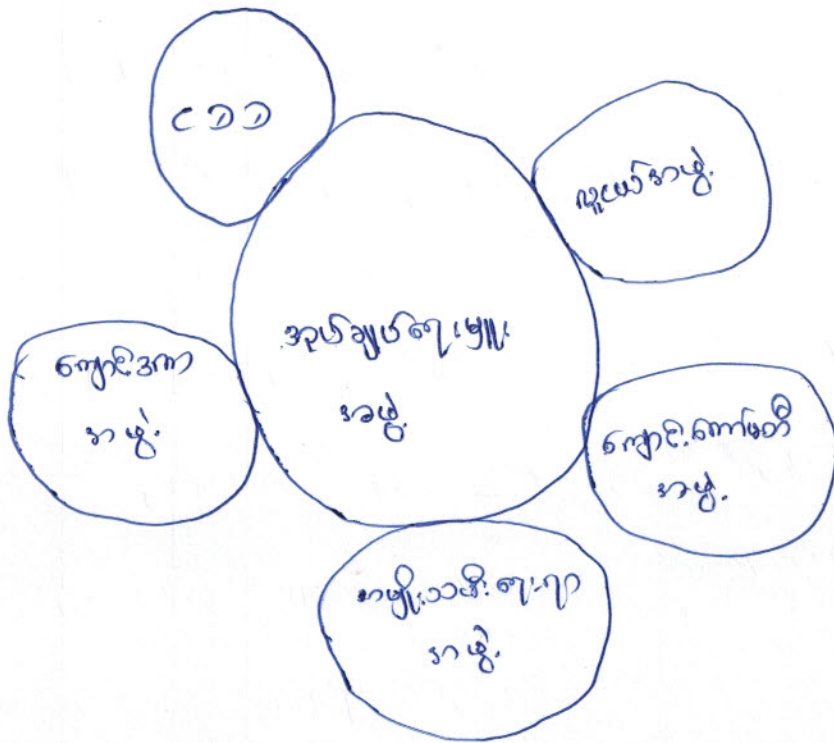 CDD
လူငယ်အဖွဲ့
အုပ်ချုပ်ရေးမှူး
အဖွဲ့
ကျောင်းဒကာ
အဖွဲ့
ကျောင်းကော်မတီ
အဖွဲ့
အမျိုးသမီးရေးရာ
အဖွဲ့